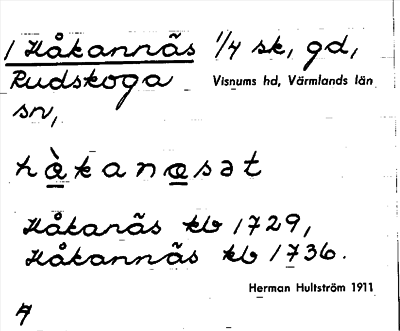 1 Håkannäs 1/4 sk, gd,
Rudskoga Visnums hd, Värmlands län
sn,
hὰkanɑsət
Håkanäs kb 1729,
Håkannäs kb 1736.
Herman Hultström 1911